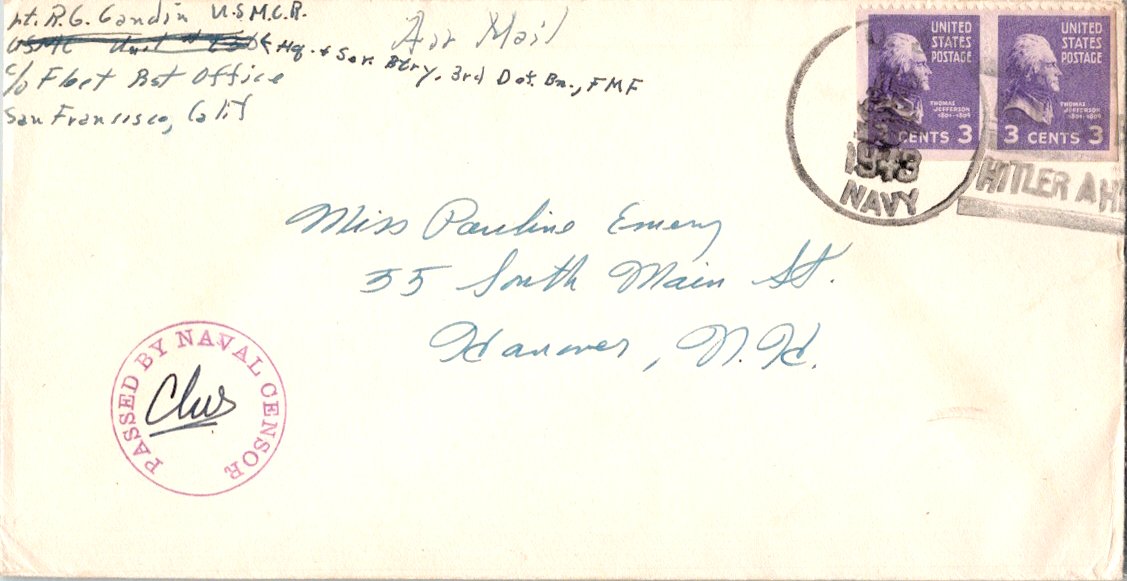 Lt. R.G. Gandin U.S.M.C.R.
USMC Unit # Hq. + Ser. Btry. 3rd Def. Bn., FMF
c/o Fleet Post Office
San Francisco, Calif
Air Mail
UNITED STATES POSTAGE
THOMAS JEFFERSON
1801-1809
3 CENTS 3
UNITED STATES POSTAGE
THOMAS JEFFERSON
1801-1809
3 CENTS 3
1943
NAVY
HITLER A
Miss Pauline Emery
55 South Main St.
Hanover, N.H.
PASSED BY NAVAL CENSOR